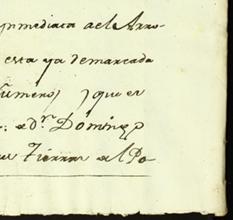 ynmediata ael Arro-
esta ya demarcada
Numero) que es
a Dn. Domingo
Tierras el Po-